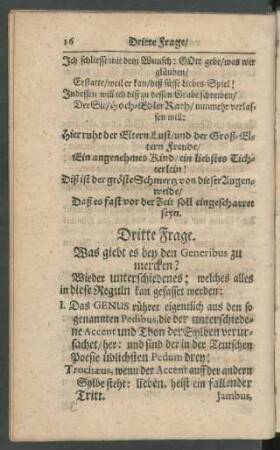 16 Dritte Frage/
Ich schliesse mit dem Wunsch: GOtt gebe/was wir
gläuben/
Erstatte/weil er kan/diß süsse liebes-Spiel!
Indessen will ich diß zu dessen Grabe schreiben/
Der Sie/Hoch-Edler Rath/ nunmehr verlas-
sen will:
Hier ruht der Eltern Lust/und der Groß-El-
tern Freude/
Ein angenehmes Kind/ein liebstes Töch-
terlein!
Diß ist der gröste Schmertz von dieser Augen-
weide/
Daß es fast vor der Zeit soll eingescharret
seyn.
Dritte Frage.
Was giebt es bey den Generibus zu
mercken?
Wieder unterschiedenes; welches alles
in diese Reguln kan gefasset werden:
I. Das GENUS rühret eigentlich aus den so
genannten Pedibus, die der unterschiede-
ne Accent und Thon der Sylben verur-
sachet/her: und sind der in der Teutschen
Poesie üblichsten Pedum drey:
Trochæus, wenn der Accent auff der andern
Sylbe steht: lieben. heist ein fallender
Tritt. Jambus,